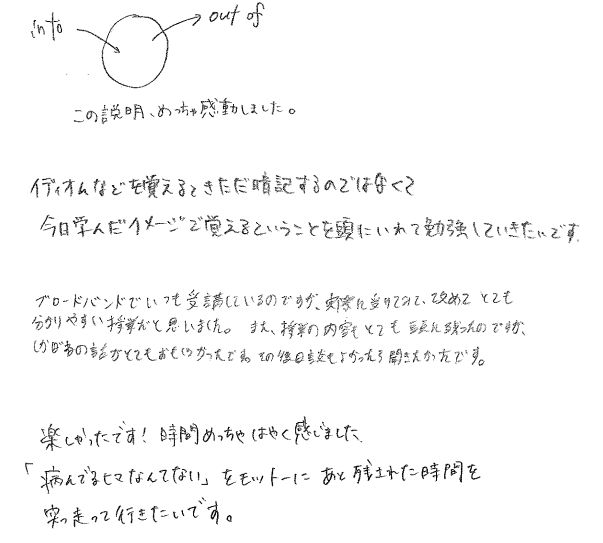 into
out of
この説明、めっちゃ感動しました。
イディオムなどを覚えるときただ暗記するのではなくて
今日学んだイメージで覚えるということを頭にいれて勉強していきたいです
ブロードバンドでいつも受講しているのですが、実際に受けてみて、改めてとても
分かりやすい授業だと思いました。また、授業の内容もとても頭に残ったのですが、
の話がとてもおもしろかったです。その後日談もよかったら聞きたかったです。
楽しかったです！時間めっちゃはやく感じました
「病んでるヒマなんてない」をモットーにあと残された時間を
突っ走って行きたいです。